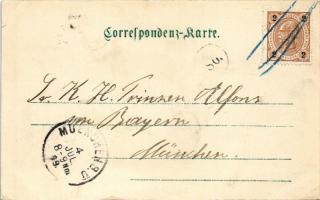 Correspondenz-Karte.
2 2
2 2
Sr. K. H. Prinzen Alfons
von Bayern
München.
MUENCHEN
4
JUL
8-9 Nm
99